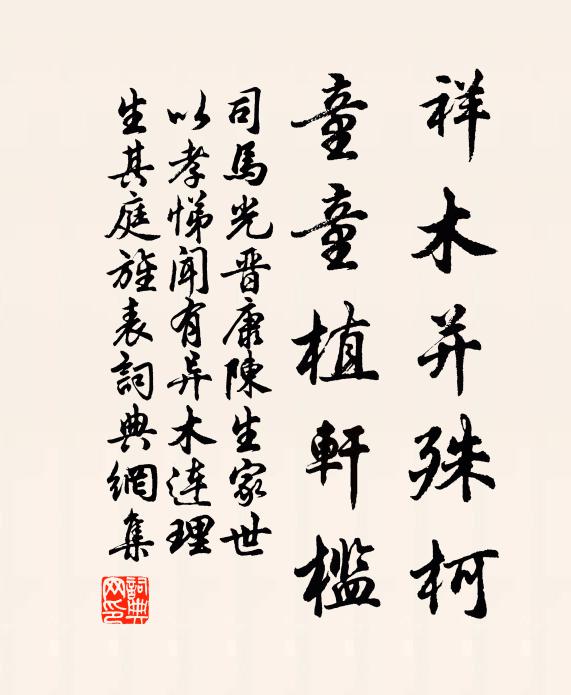 祥木并殊柯
童童植軒檻
司馬光晋康陳生家世
以孝悌聞有异木连理
生其庭旌表詞典網集
詞典网印